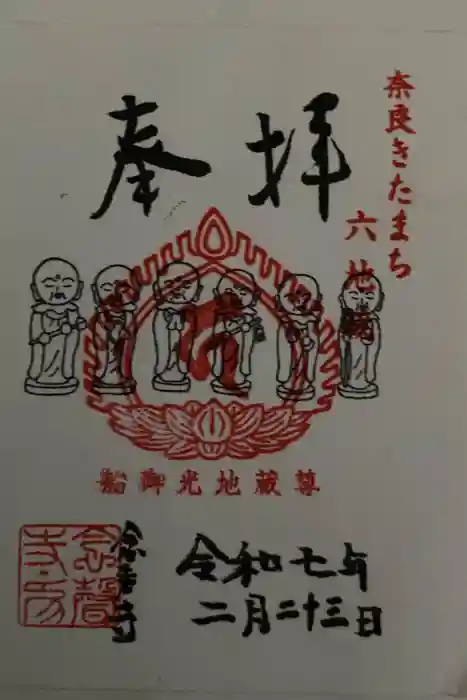 奉拝
奈良きたまち
六地蔵
船御光地蔵尊
令和七年
二月二十三日
念声寺
念聲寺印